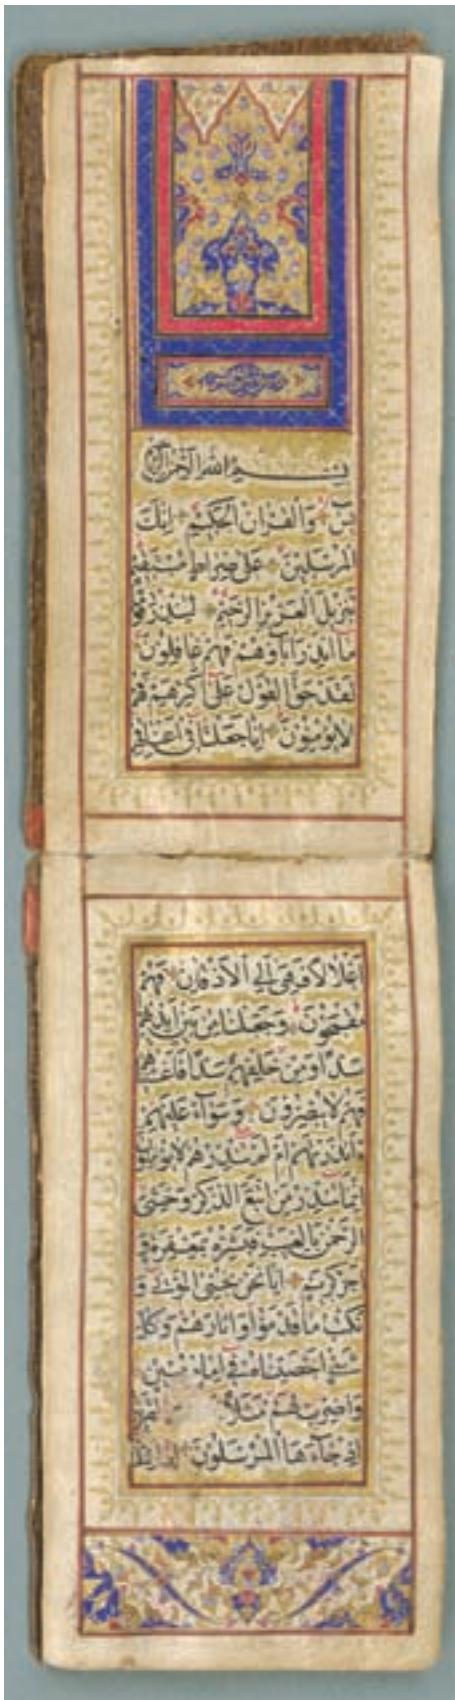 بسم الله الرحمن الرحيم
يس وَالْقُرْآنِ الْحَكِيمِ إِنَّكَ
الْمُرْسَلِينَ عَلَى صِرَاطٍ مُسْتَقِيمٍ
تَنْزِيلَ الْعَزِيزِ الرَّحِيمِ لِتُنْذِرَ قَوْمًا
مَا أُنْذِرَ آبَاؤُهُمْ فَهُمْ غَافِلُونَ
لَقَدْ حَقَّ الْقَوْلُ عَلَى أَكْثَرِهِمْ فَهُمْ
لَا يُؤْمِنُونَ إِنَّا جَعَلْنَا فِي أَعْنَاقِهِمْ
أَغْلَالًا فَهِيَ إِلَى الْأَذْقَانِ فَهُمْ
مُقْمَحُونَ وَجَعَلْنَا مِنْ بَيْنِ أَيْدِيهِمْ
سَدًّا وَمِنْ خَلْفِهِمْ سَدًّا فَأَغْشَيْنَاهُمْ
فَهُمْ لَا يُبْصِرُونَ وَسَوَاءٌ عَلَيْهِمْ
ءَأَنْذَرْتَهُمْ أَمْ لَمْ تُنْذِرْهُمْ لَا يُؤْمِنُونَ
إِنَّمَا تُنْذِرُ مَنِ اتَّبَعَ الذِّكْرَ وَخَشِيَ
الرَّحْمَنَ بِالْغَيْبِ فَبَشِّرْهُ بِمَغْفِرَةٍ وَ
أَجْرٍ كَرِيمٍ إِنَّا نَحْنُ نُحْيِي الْمَوْتَى وَ
نَكْتُبُ مَا قَدَّمُوا وَآثَارَهُمْ وَكُلَّ
شَيْءٍ أَحْصَيْنَاهُ فِي إِمَامٍ مُبِينٍ
وَاضْرِبْ لَهُمْ مَثَلًا
إِذْ جَاءَهَا الْمُرْسَلُونَ